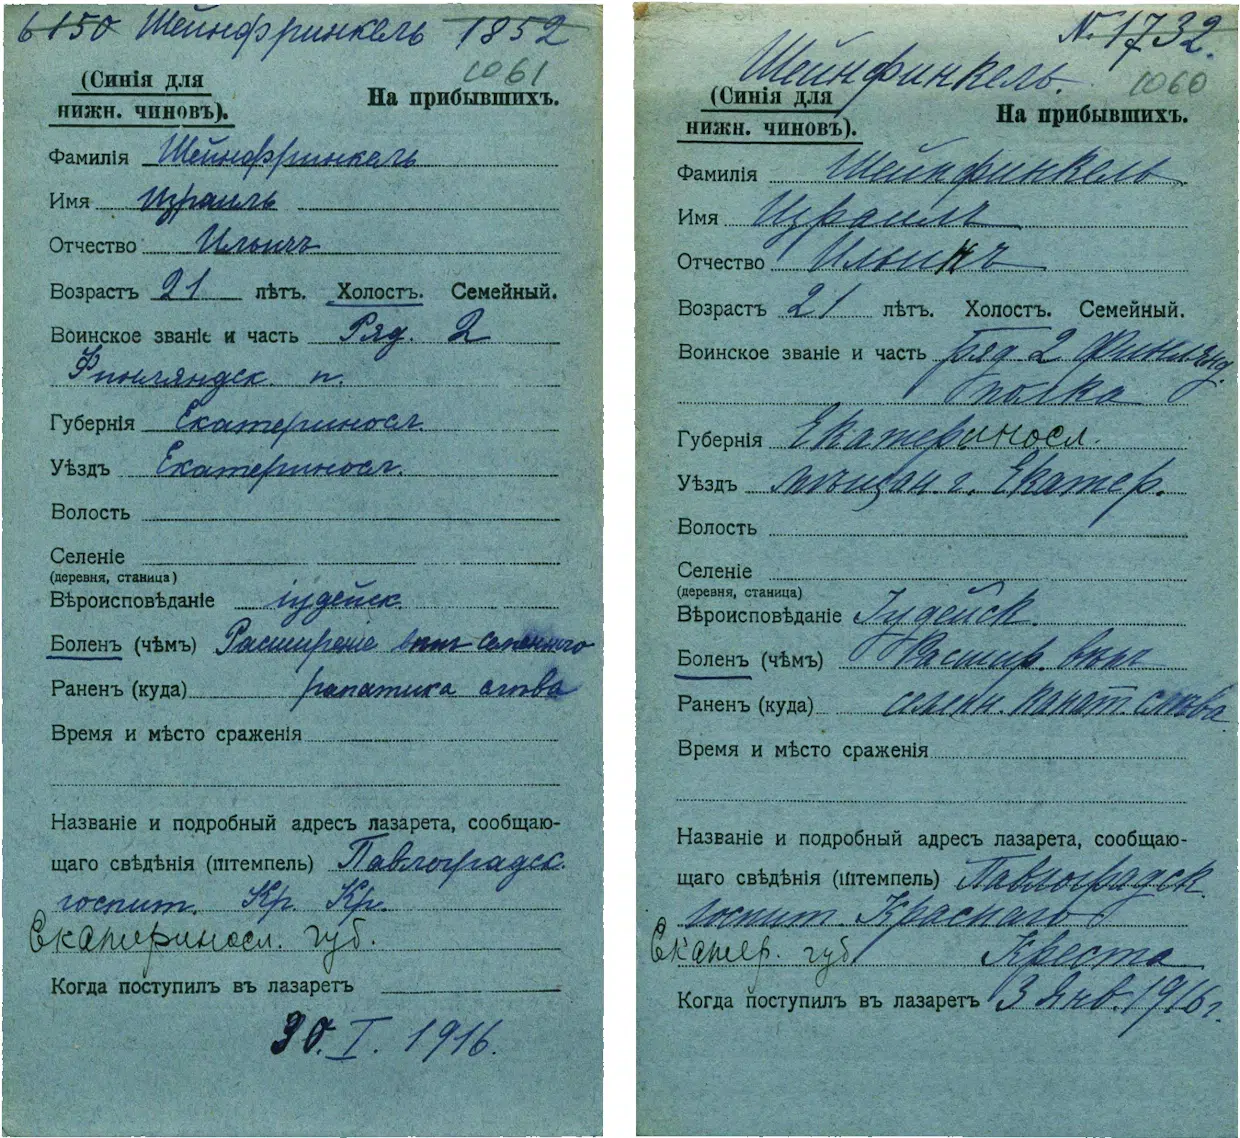 6150 Шейнфринкель 1852
1061
(Синія для
нижн. чиновъ).
На прибывшихъ.
Фамилія Шейнфринкель
Имя Израиль
Отчество Ильичъ
Возрастъ 21 лѣтъ. Холостъ. Семейный.
Воинское званіе и часть Ряд. 2
Финляндск. п.
Губернія Екатеринosл.
Уѣздъ Екатериносл.
Волость
Селеніе
(деревня, станица)
Вѣроисповѣданіе іудейск.
Боленъ (чѣмъ) Расширеніе семеннаго
Раненъ (куда) слѣва
Время и мѣсто сраженія
Названіе и подробный адресъ лазарета, сообщаю-
щаго свѣдѣнія (штемпель) Павлоградск.
госпит. Кр. Кр.
Екатериносл. губ.
Когда поступилъ въ лазаретъ
30. I. 1916.
N. 1732.
Шейнфинкель.
1060
(Синія для
нижн. чиновъ).
На прибывшихъ.
Фамилія Шейнфинкель
Имя Израиль
Отчество Ильичъ
Возрастъ 21 лѣтъ. Холостъ. Семейный.
Воинское званіе и часть Ряд. 2 Финлянд.
полка
Губернія Екатериносл.
Уѣздъ мѣщан. г. Екатер.
Волость
Селеніе
(деревня, станица)
Вѣроисповѣданіе Іудейск.
Боленъ (чѣмъ) Расшир. вѣнъ
Раненъ (куда) семен. канат слѣва
Время и мѣсто сраженія
Названіе и подробный адресъ лазарета, сообщаю-
щаго свѣдѣнія (штемпель) Павлоградск
госпит. Краснаго
Екатер. губ Креста
Когда поступилъ въ лазаретъ 3 Янв. 1916 г.